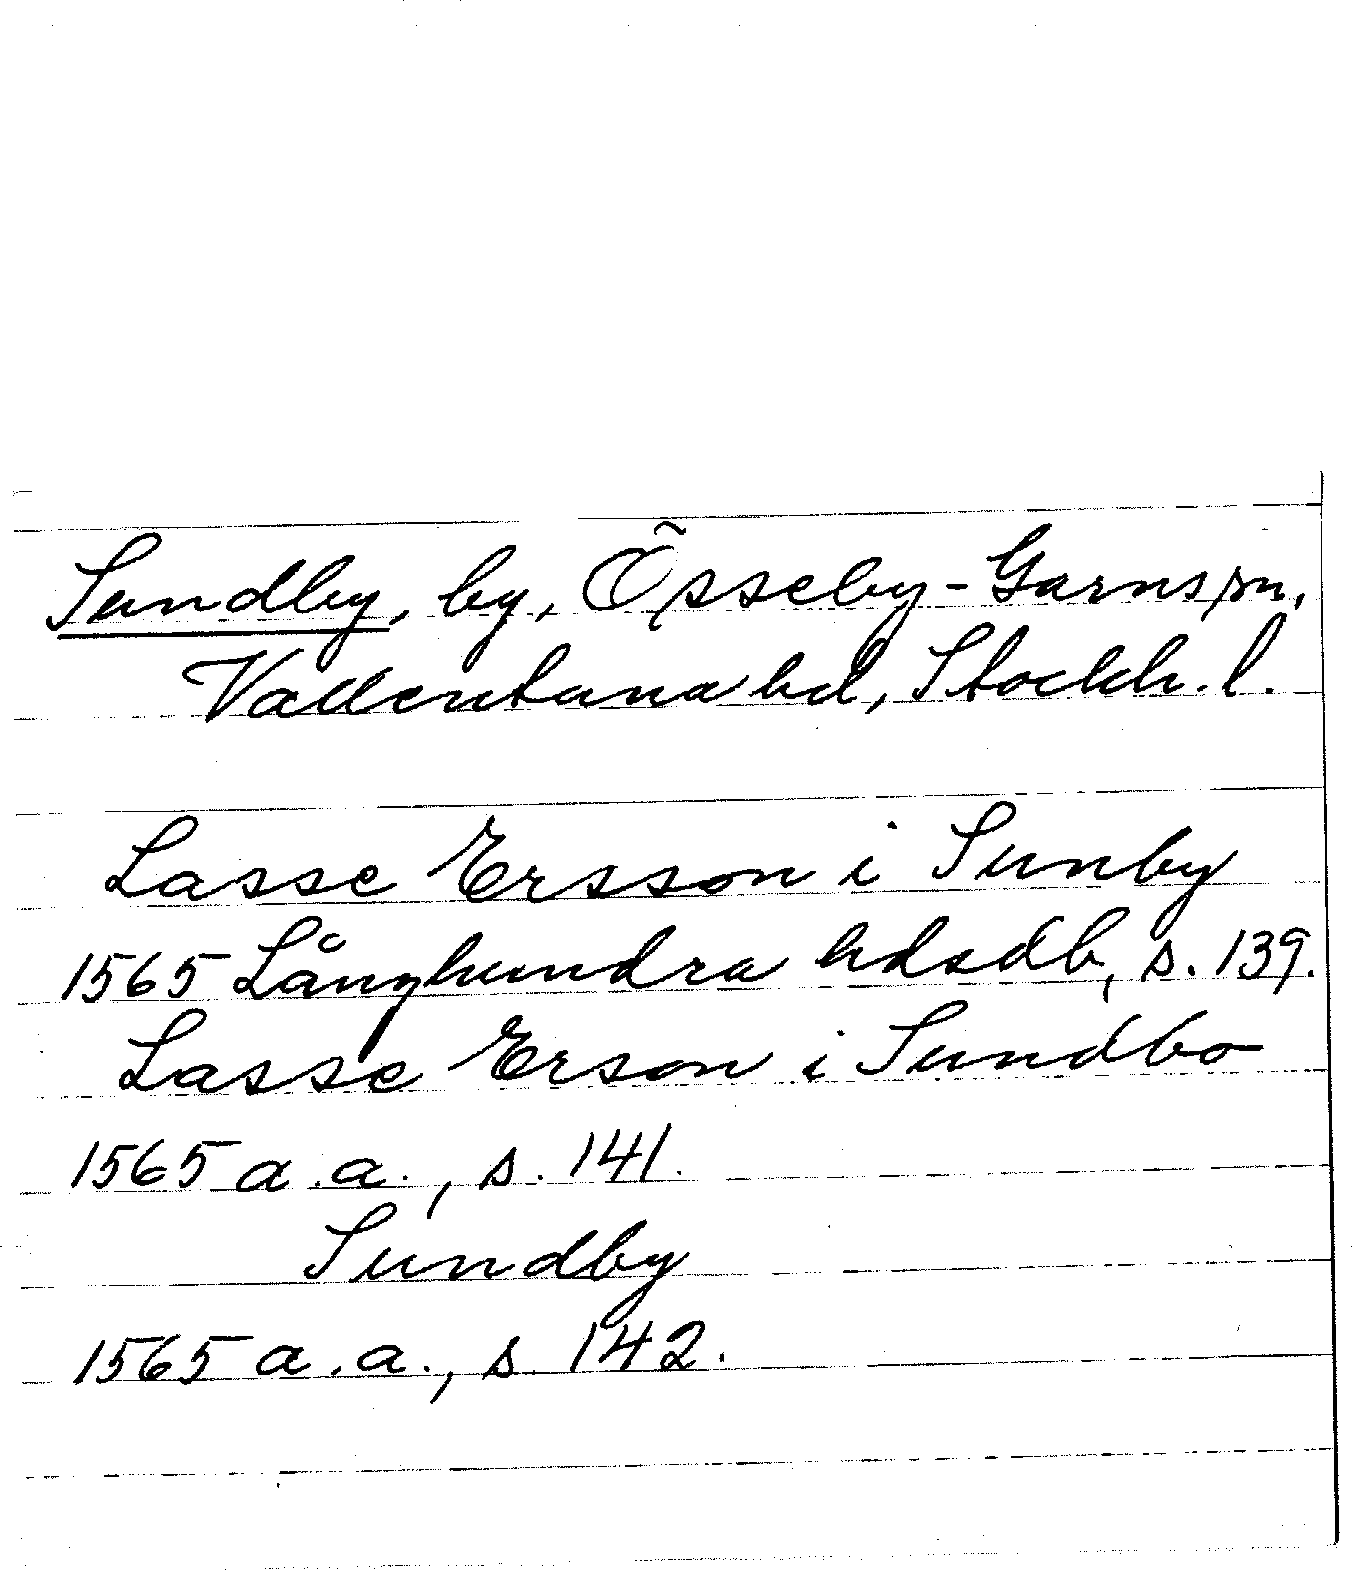 Sundby, by, Össeby-Garns sn,
Vallentuna hd, Stockh. l.
Lasse Ersson i Sunby
1565 Långhundra hdsdb, s. 139.
Lasse Erson i Sundbo
1565 a.a., s. 141.
Sundby
1565 a.a., s. 142.